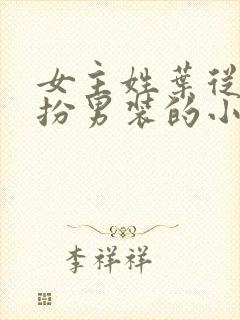 女主姓葉從
扮男裝的小
李祥祥